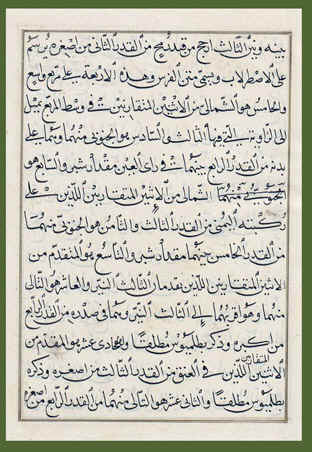 بينه وبين الثالث ارجح من من القدر الثانى من اصغره يرسم
على الاصطرلاب ويسمى متن الفرس وهذه الاربعة على مربع واسع
والخامس هو الشمالى من الاثنين المتقاربين فى وسط المربع تميل
الى الزاوية التى فيها الثالث والسادس هو الجنوبى منهما وهما على
بدنه من القدر الرابع بينهما فى راى العين مقدار شبر والسابع هو
الجنوبى منهما الشمالى من الاثنين المتقاربين اللذين على
ركبته اليمنى من القدر الثالث والثامن هو الجنوبى منهما
من القدر الخامس بينهما مقدار شبر والتاسع هو المتقدم من
الاثنين المتقاربين اللذين يتقدمان الثالث النير والعاشر هو التالى
منهما وهو اقربهما الى الثالث النير وهما فى صدره من القدر الرابع
من اكبره وذكر بطلميوس مطلقا والحادى عشر هو المتقدم من
الاثنين المتقاربين اللذين فى العنق من القدر الثالث من اصغره وذكره
بطلميوس مطلقا والثانى عشر هو التالى منهما من القدر الرابع من اصغره